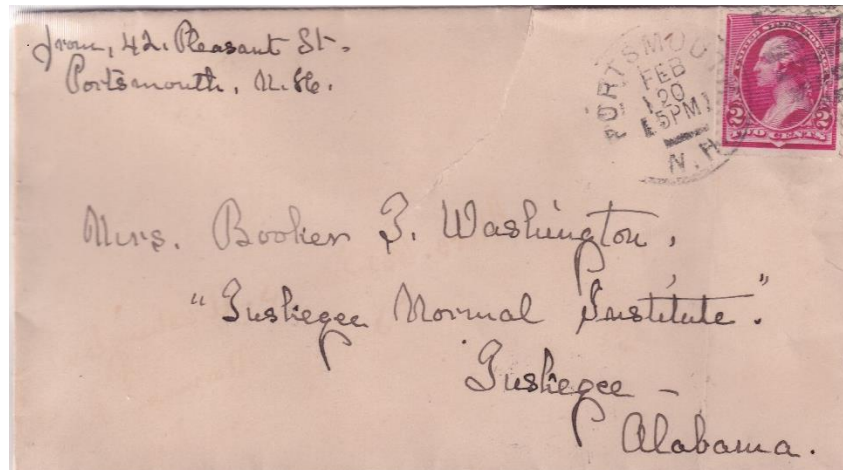 from, 42. Pleasant St.
Portsmouth, N.H.
PORTSMOUTH
FEB
20
5PM
N.H.
UNITED STATES POSTAGE
2 2
TWO CENTS
Mrs. Booker T. Washington,
"Tuskegee Normal Institute."
Tuskegee —
Alabama.